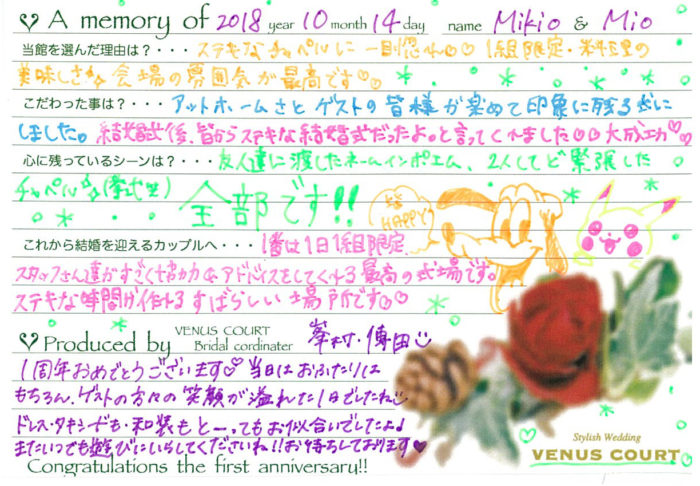 ♡ A memory of 2018 year 10 month 14 day name Mikio & Mio
当館を選んだ理由は？・・・ステキなチャペルに一目惚れ♡♡ 1組限定・料理の
美味しさ 会場の雰囲気が最高です♡♡
こだわった事は？・・・アットホームさとゲストの皆様が楽めて印象に残る式に
しました。結婚式後、皆からステキな結婚式だったよ。と言ってくれました♡♡大成功♡
心に残っているシーンは？・・・友人達に渡したネームインポエム、2人してど緊張した
チャペル(挙式) 全部です!!
HAPPY!
これから結婚を迎えるカップルへ・・・1番は1日1組限定、
スタッフさん達がすごく協力&アドバイスをしてくれる最高の式場です。
ステキな時間が作れるすばらしい場所です♡♡
♡ Produced by VENUS COURT Bridal cordinater 峯村・傳田
1周年おめでとうございます♡ 当日はおふたりは
もちろん、ゲストの方々の笑顔が溢れた1日でしたね
ドレス・タキシードも・和装もとーってもお似合いでしたよ♪
またいつでも遊びにいらしてくださいね!!お待ちしております♥
Congratulations the first anniversary!!
Stylish Wedding
VENUS COURT